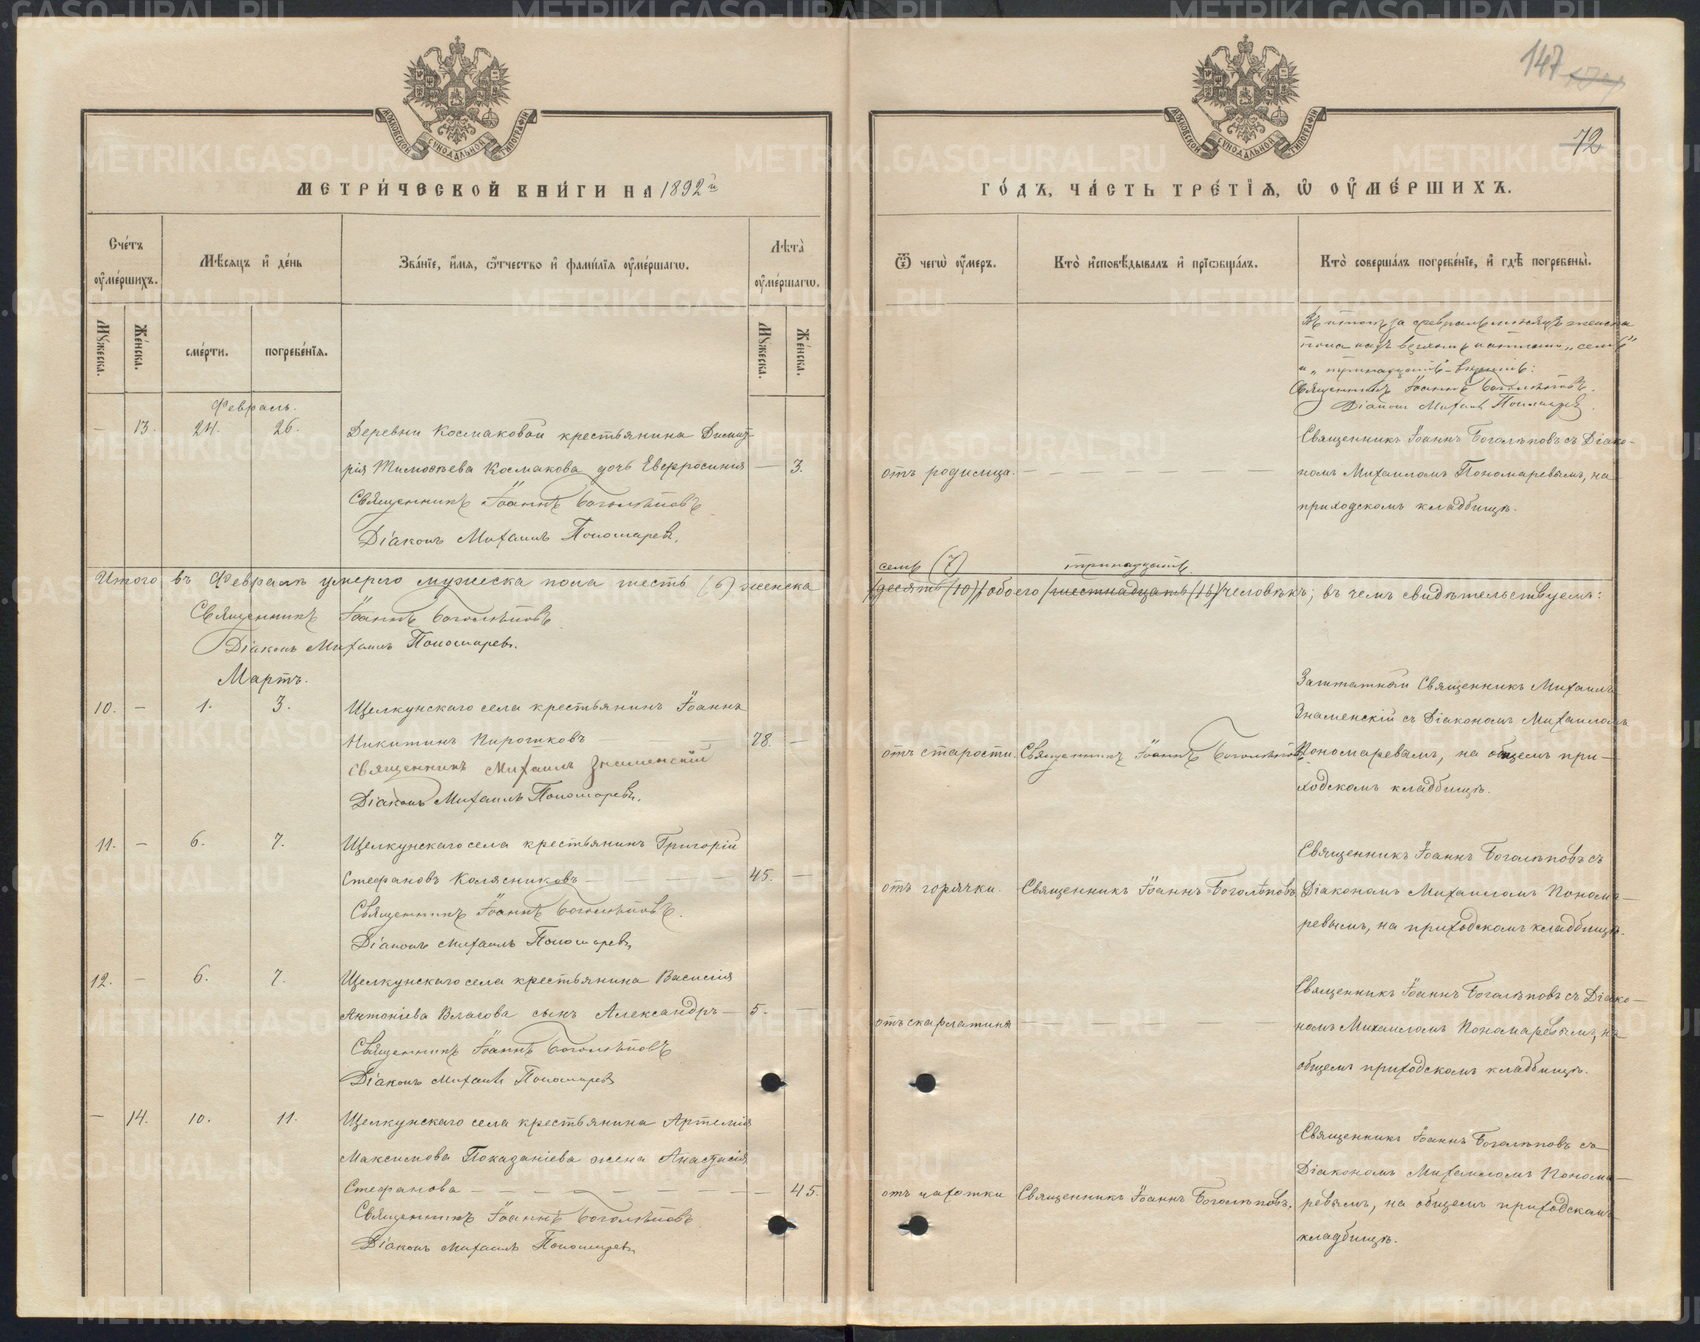 147
72
МЕТРИ́ЧЕСКОЙ КНИ́ГИ НА 1892й
ГО́ДЪ, ЧА́СТЬ ТРЕ́ТІѦ, Ѡ ОУ҆МЕ́РШИХЪ.
Сче́тъ оу҆ме́ршихъ.
Мѣ́сяцъ и҆ де́нь
Зва́ніе, и҆́мя, ѻ҆́тчество и҆ фами́лїя оу҆ме́ршагѡ.
Лѣ́та оу҆ме́ршагѡ.
Ѿ чегѡ̀ оу҆́меръ.
Кто̀ и҆сповѣ́дывалъ и҆ прїѡбща́лъ.
Кто̀ соверша́лъ погребе́нїе, и҆ гдѣ̀ погребены̀.
Мꙋжеска.
Же́нска.
сме́рти.
погребе́нїя.
Мꙋжеска.
Же́нска.
Въ итогѣ за февраль мѣсяцъ женска
пола надъ верхомъ написано „семь"
и „тринадцать" вѣрить:
Священникъ Іоаннъ Боголѣповъ.
Діаконъ Михаилъ Пономаревъ
Февраль.
— 13. 24. 26. Деревни Космаковой крестьянина Димит-
рія Тимоѳеева Космакова дочь Евфросинія — 3.
Священникъ Іоаннъ Боголѣповъ
Діаконъ Михаилъ Пономаревъ.
отъ родимца. — — —
Священникъ Іоаннъ Боголѣповъ съ Діако-
номъ Михаиломъ Пономаревымъ, на
приходскомъ кладбищѣ.
семь (7) тринадцать
Итого въ Февралѣ умерло мужеска пола шесть (6) женска
(десять (10)) обоего (шестнадцать (16)) человѣкъ; въ чемъ свидѣтельствуемъ:
Священникъ Іоаннъ Боголѣповъ
Діаконъ Михаилъ Пономаревъ.
Мартъ.
10. — 1. 3. Щелкунскаго села крестьянинъ Іоаннъ
Никитинъ Пирожковъ — 78. —
Священникъ Михаилъ Знаменскій
Діаконъ Михаилъ Пономаревъ.
отъ старости. Священникъ Іоаннъ Боголѣповъ
Заштатный Священникъ Михаилъ
Знаменскій съ Діакономъ Михаиломъ
Пономаревымъ, на общемъ при-
ходскомъ кладбищѣ.
11. — 6. 7. Щелкунскаго села крестьянинъ Григорій
Стефановъ Колясниковъ — 45. —
Священникъ Іоаннъ Боголѣповъ.
Діаконъ Михаилъ Пономаревъ
отъ горячки. Священникъ Іоаннъ Боголѣповъ
Священникъ Іоаннъ Боголѣповъ съ
Діакономъ Михаиломъ Понома-
ревымъ, на приходскомъ кладбищѣ.
12. — 6. 7. Щелкунскаго села крестьянина Василія
Антоніева Власова сынъ Александръ — 5. —
Священникъ Іоаннъ Боголѣповъ
Діаконъ Михаилъ Пономаревъ
отъ скарлатина — — —
Священникъ Іоаннъ Боголѣповъ съ Діако-
номъ Михаиломъ Пономаревымъ, на
общемъ приходскомъ кладбищѣ.
— 14. 10. 11. Щелкунскаго села крестьянина Артемія
Максимова Показаніева жена Анастасія
Стефанова — — 45.
Священникъ Іоаннъ Боголѣповъ
Діаконъ Михаилъ Пономаревъ
отъ чахотки Священникъ Іоаннъ Боголѣповъ.
Священникъ Іоаннъ Боголѣповъ съ
Діакономъ Михаиломъ Понома-
ревымъ, на общемъ приходскомъ
кладбищѣ.
METRIKI.GASO-URAL.RU